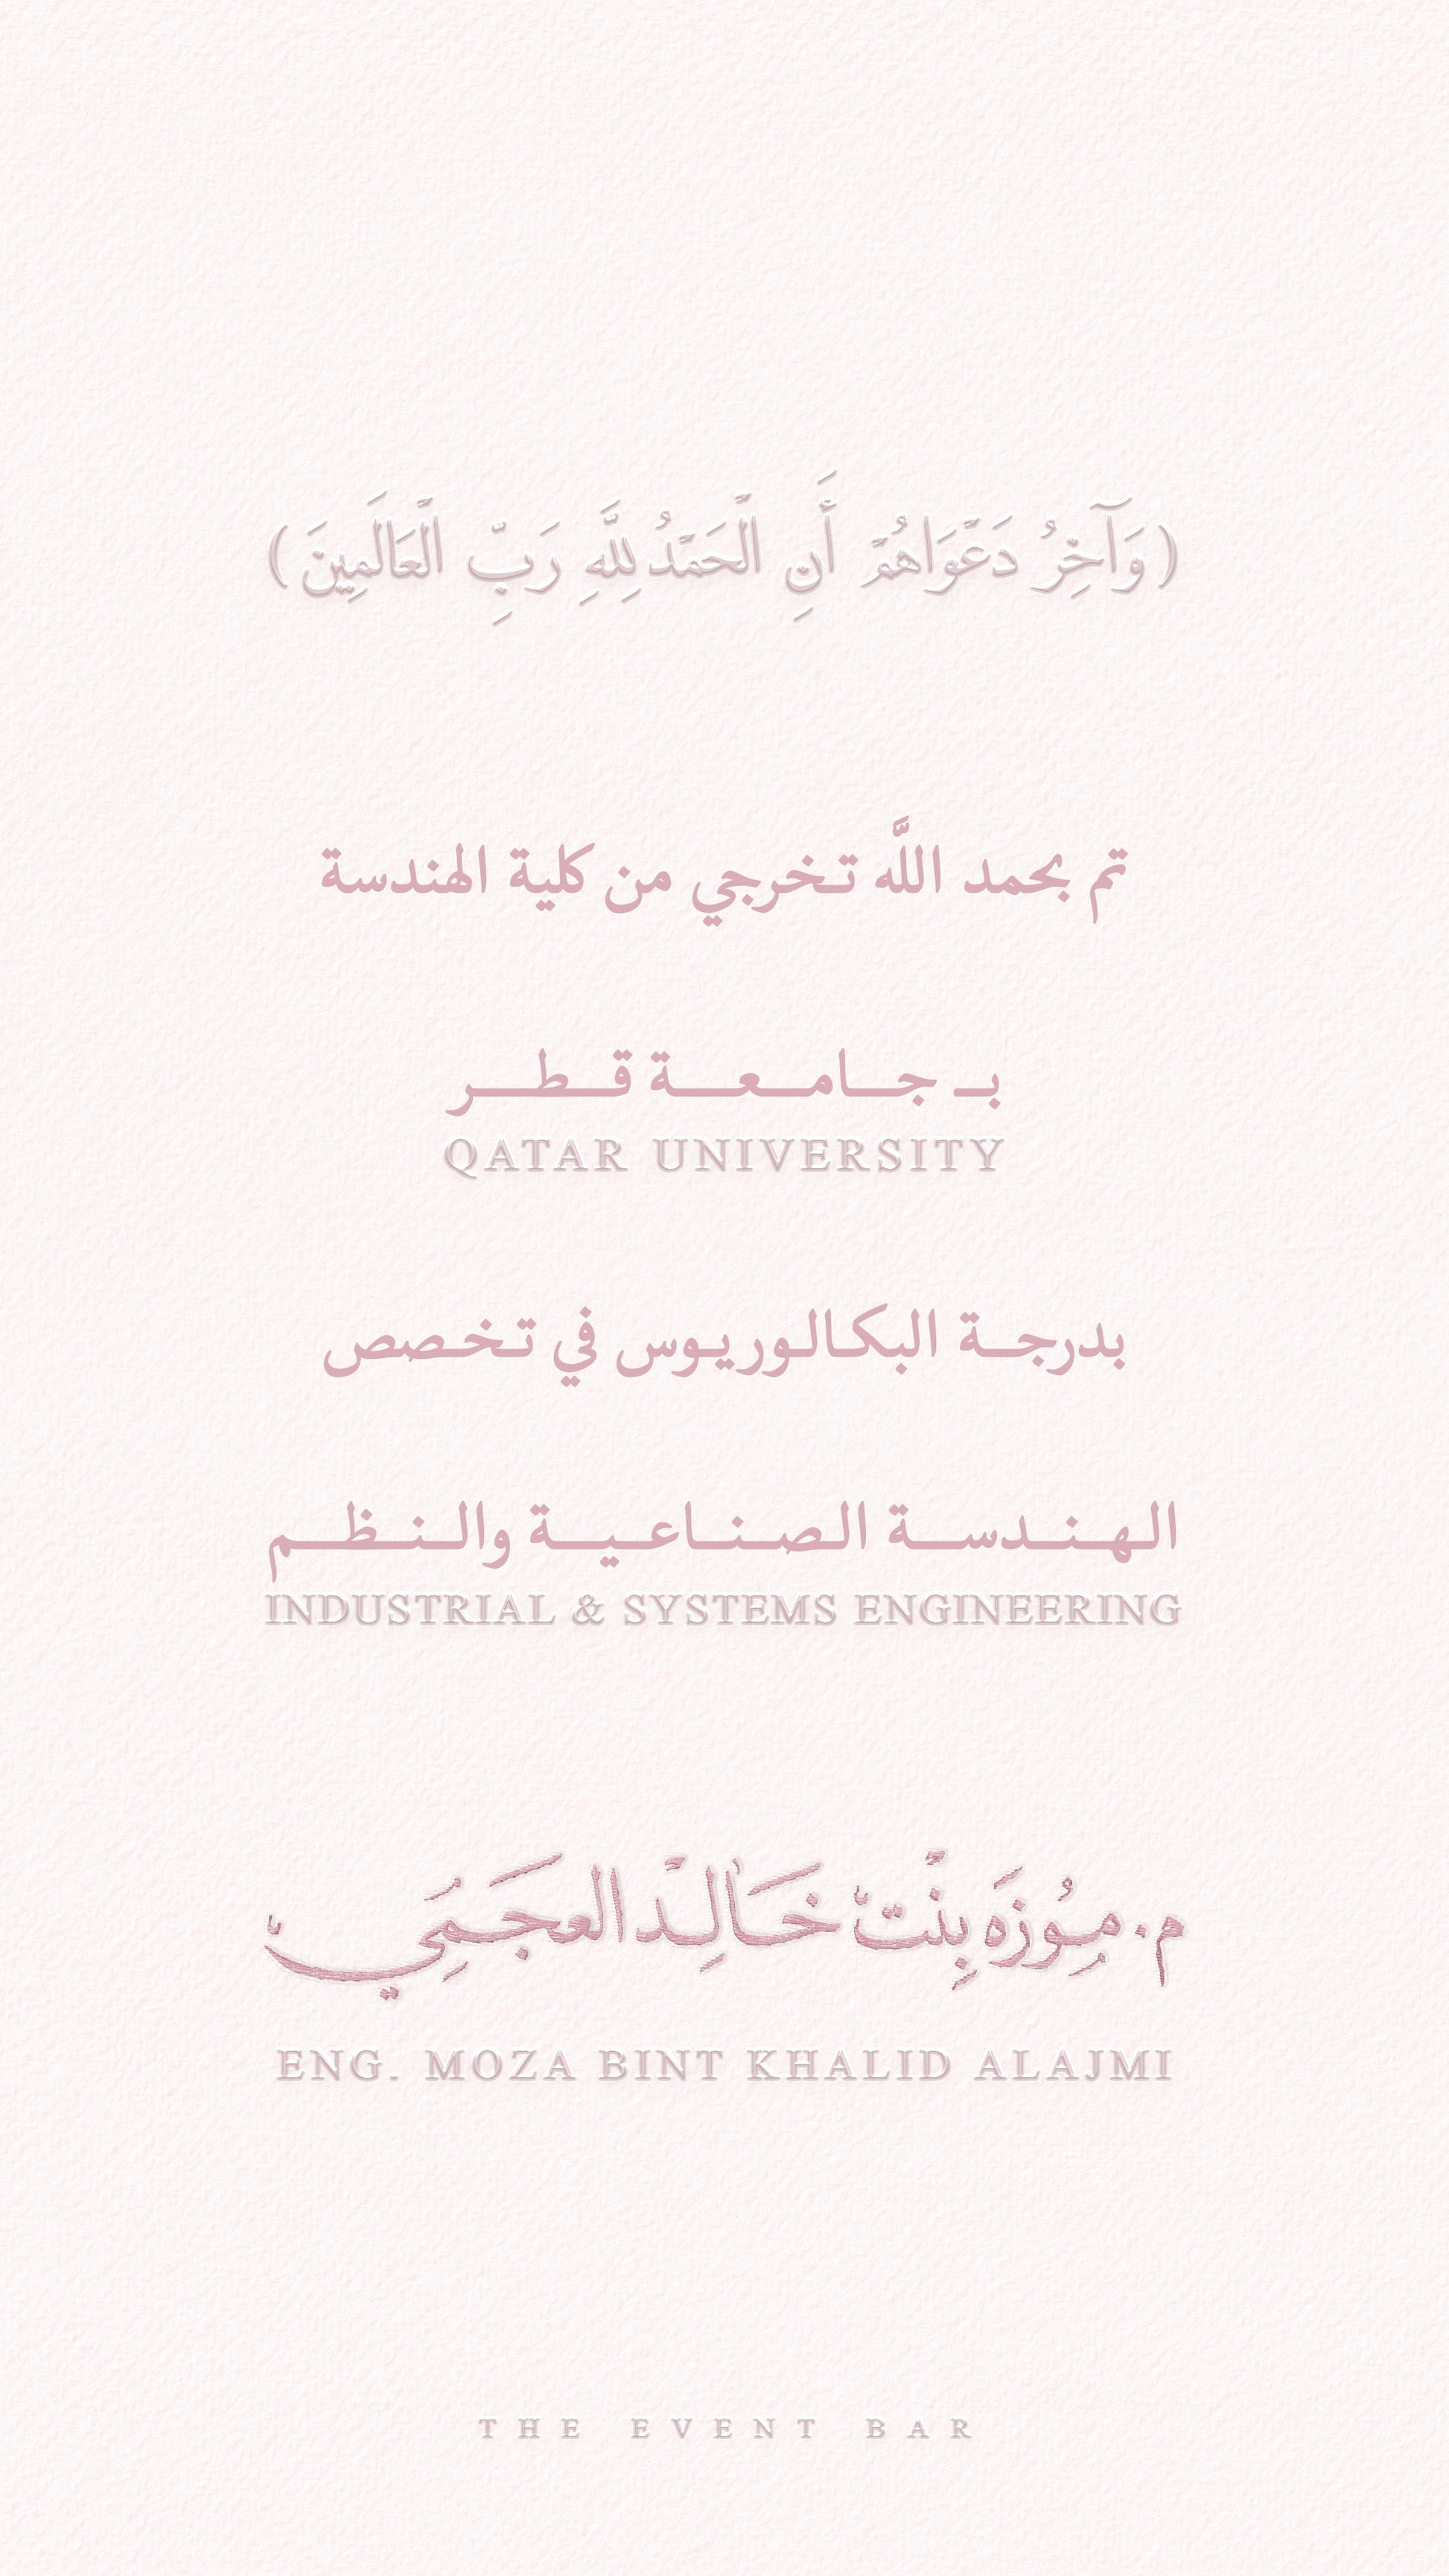 ( وَآخِرُ دَعْوَاهُمْ أَنِ الْحَمْدُ لِلَّهِ رَبِّ الْعَالَمِينَ )
تم بحمد اللَّه تخرجي من كلية الهندسة
بـ جامعة قطر
QATAR UNIVERSITY
بدرجة البكالوريوس في تخصص
الهندسة الصناعية والنظم
INDUSTRIAL & SYSTEMS ENGINEERING
م. مُوزَه بِنْت خَالِد العجَمِي
ENG. MOZA BINT KHALID ALAJMI
THE EVENT BAR